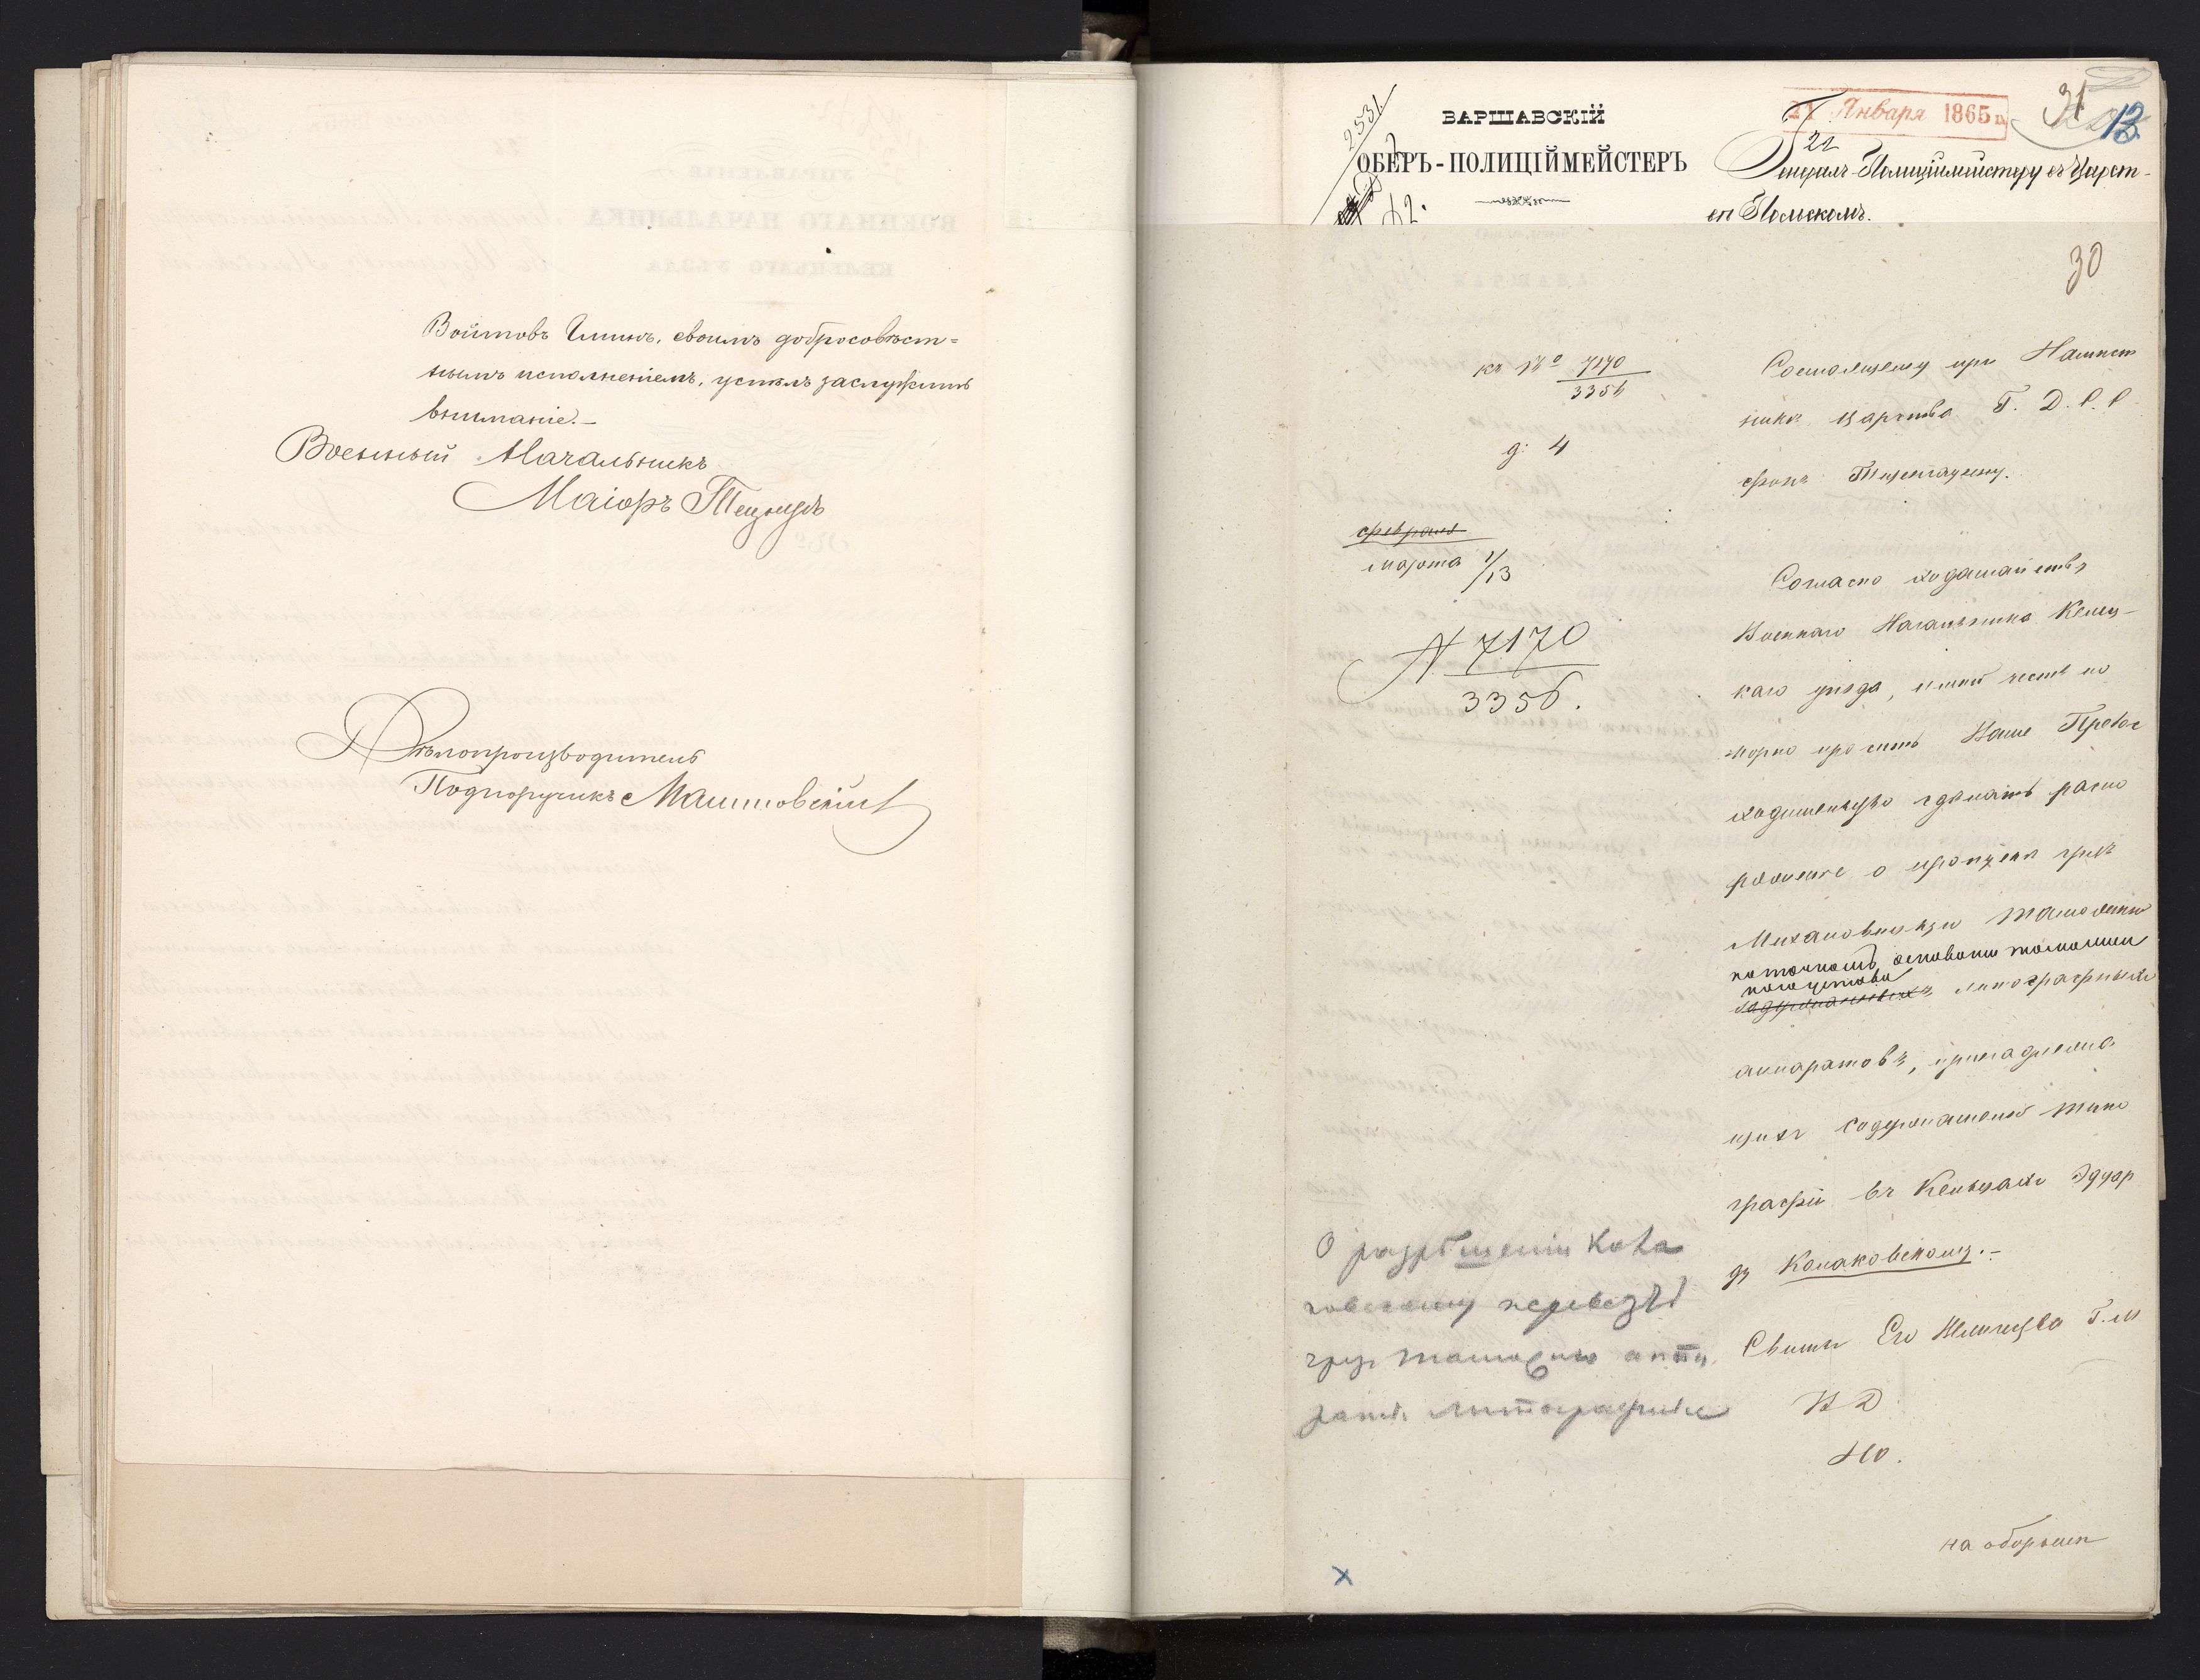 Войтовъ Гминъ, своимъ добросовѣст=
нымъ исполненіемъ, успѣлъ заслужить
вниманіе.—
Военный Начальникъ
Маіоръ
Дѣлопроизводитель
Подпоручикъ
2531
ВАРШАВСКІЙ
ОБЕРЪ-ПОЛИЦІЙМЕЙСТЕРЪ
42.
21 Января 1865 г.
22
31
13
Генералъ-Полиціймейстеру въ Царст-
вѣ Польскомъ.
30
къ № 7170
3356
д: 4
февраля
марта 1/13
N 7170
3356.
Состоящему при Намѣст
никѣ Царства Г. Д. С. С
фонъ
Согласно ходатайства
Военнаго Начальника Кѣлец-
каго уѣзда, имѣю честь по
корно просить Ваше Превос
ходительство сдѣлать распо
ряженіе о пропускѣ чрезъ
Михаловицкую таможню
на точномъ основаніи таможен
наго устава
задержанныхъ литографныхъ
аппаратовъ, принадлежа
щихъ содержателю типо
графіи въ Кельцахъ Эдуар
ду Колаковскому.—
Свиты Его Величества Г. М
на оборотѣ
О разрѣшеніи Кола
ковскому перевезть
чрез таможню аппа
раты литографные
x